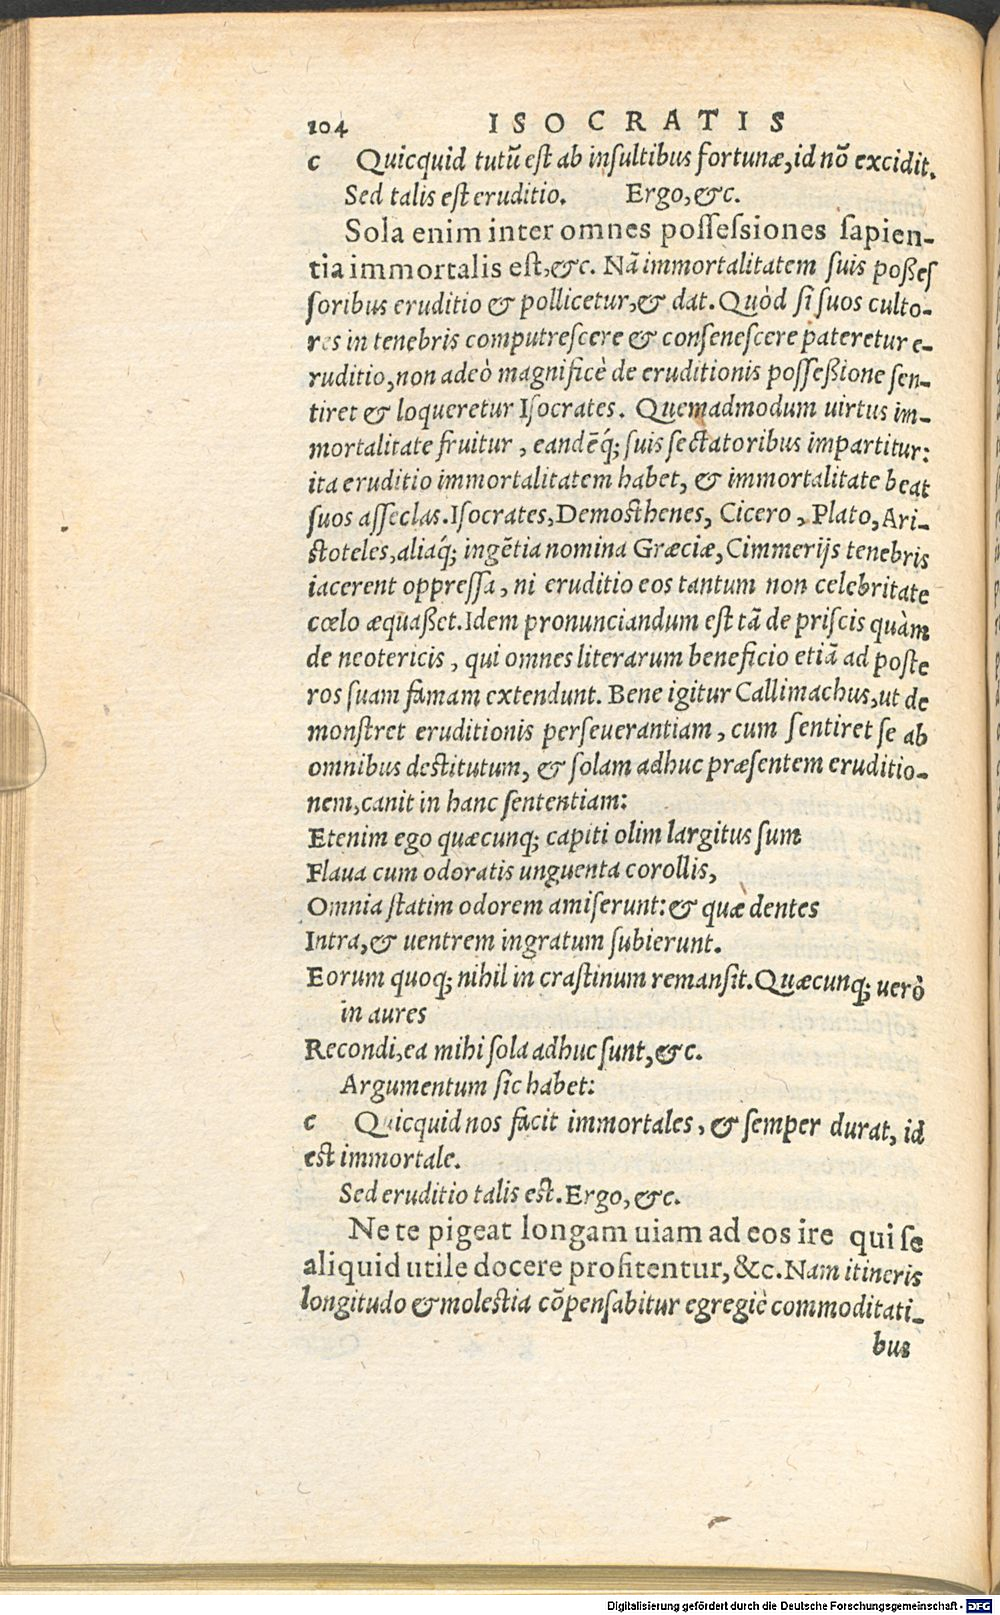 104 ISOCRATIS
c Quicquid tutũ est ab insultibus fortunæ, id nõ excidit.
Sed talis est eruditio. Ergo, &c.
Sola enim inter omnes possessiones sapien-
tia immortalis est, &c. Nã immortalitatem suis poßes
soribus eruditio & pollicetur, & dat. Quòd si suos culto-
res in tenebris computrescere & consenescere pateretur e-
ruditio, non adeò magnificè de eruditionis posseßione sen-
tiret & loqueretur Isocrates. Quemadmodum uirtus im-
mortalitate fruitur, eandẽq́; suis sectatoribus impartitur:
ita eruditio immortalitatem habet, & immortalitate beat
suos asseclas. Isocrates, Demosthenes, Cicero, Plato, Ari-
stoteles, aliaq́; ingẽtia nomina Græciæ, Cimmerijs tenebris
iacerent oppressa, ni eruditio eos tantum non celebritate
cœlo æquaßet. Idem pronunciandum est tã de priscis quàm
de neotericis, qui omnes literarum beneficio etiã ad poste
ros suam famam extendunt. Bene igitur Callimachus, ut de
monstret eruditionis perseuerantiam, cum sentiret se ab
omnibus destitutum, & solam adhuc præsentem eruditio-
nem, canit in hanc sententiam:
Etenim ego quæcunq; capiti olim largitus sum
Flaua cum odoratis unguenta corollis,
Omnia statim odorem amiserunt: & quæ dentes
Intra, & uentrem ingratum subierunt.
Eorum quoq; nihil in crastinum remansit. Quæcunq; uerò
in aures
Recondi, ea mihi sola adhuc sunt, &c.
Argumentum sic habet:
c Quicquid nos facit immortales, & semper durat, id
est immortale.
Sed eruditio talis est. Ergo, &c.
Ne te pigeat longam uiam ad eos ire qui se
aliquid utile docere profitentur, &c. Nam itineris
longitudo & molestia cõpensabitur egregiè commoditati-
bus
Digitalisierung gefördert durch die Deutsche Forschungsgemeinschaft - DFG